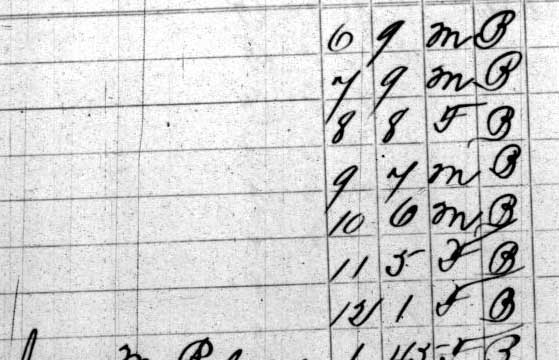 6 9 m B
7 9 m B
8 8 F B
9 7 m B
10 6 m B
11 5 F B
12 1 F B
1 45 F B